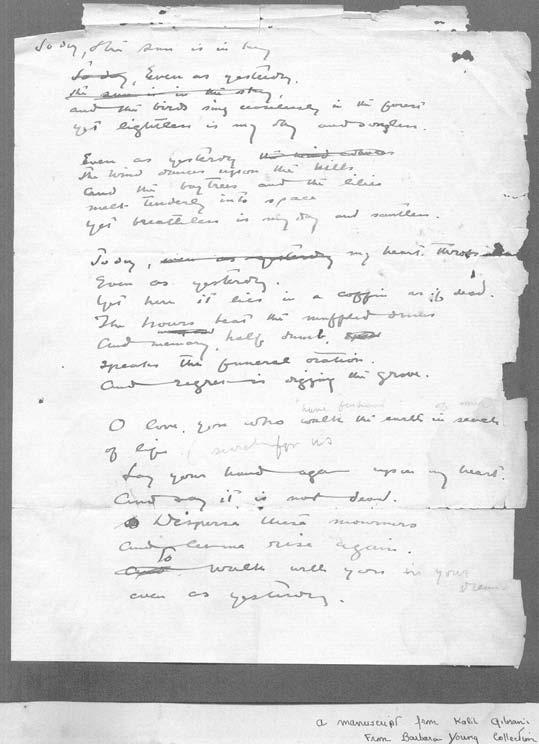 Today, the sun is in sky
Today, Even as yesterday.
the sun is in the sky,
and the birds sing in the forest
yet lightless is my day and songless.
Even as yesterday the wind dances
the wind dances upon the hills
and the baytrees and the lilies
melt tenderly into space
yet breathless is my day and scentless.
Today, even as yesterday my heart throbs
Even as yesterday.
Yet here it lies in a coffin as if dead.
The hours beat the muffled drums
And memory, half dumb,
speaks the funeral oration.
And regret is digging the grave.
O love, you who walk the earth in search
of life search for us
Lay your hand again upon my heart
And say it is not dead.
Disperse these mourners
And let me rise again.
To
and walk with you in your
dream
even as yesterday.
a manuscript from Kahlil Gibran's
From Barbara Young Collection